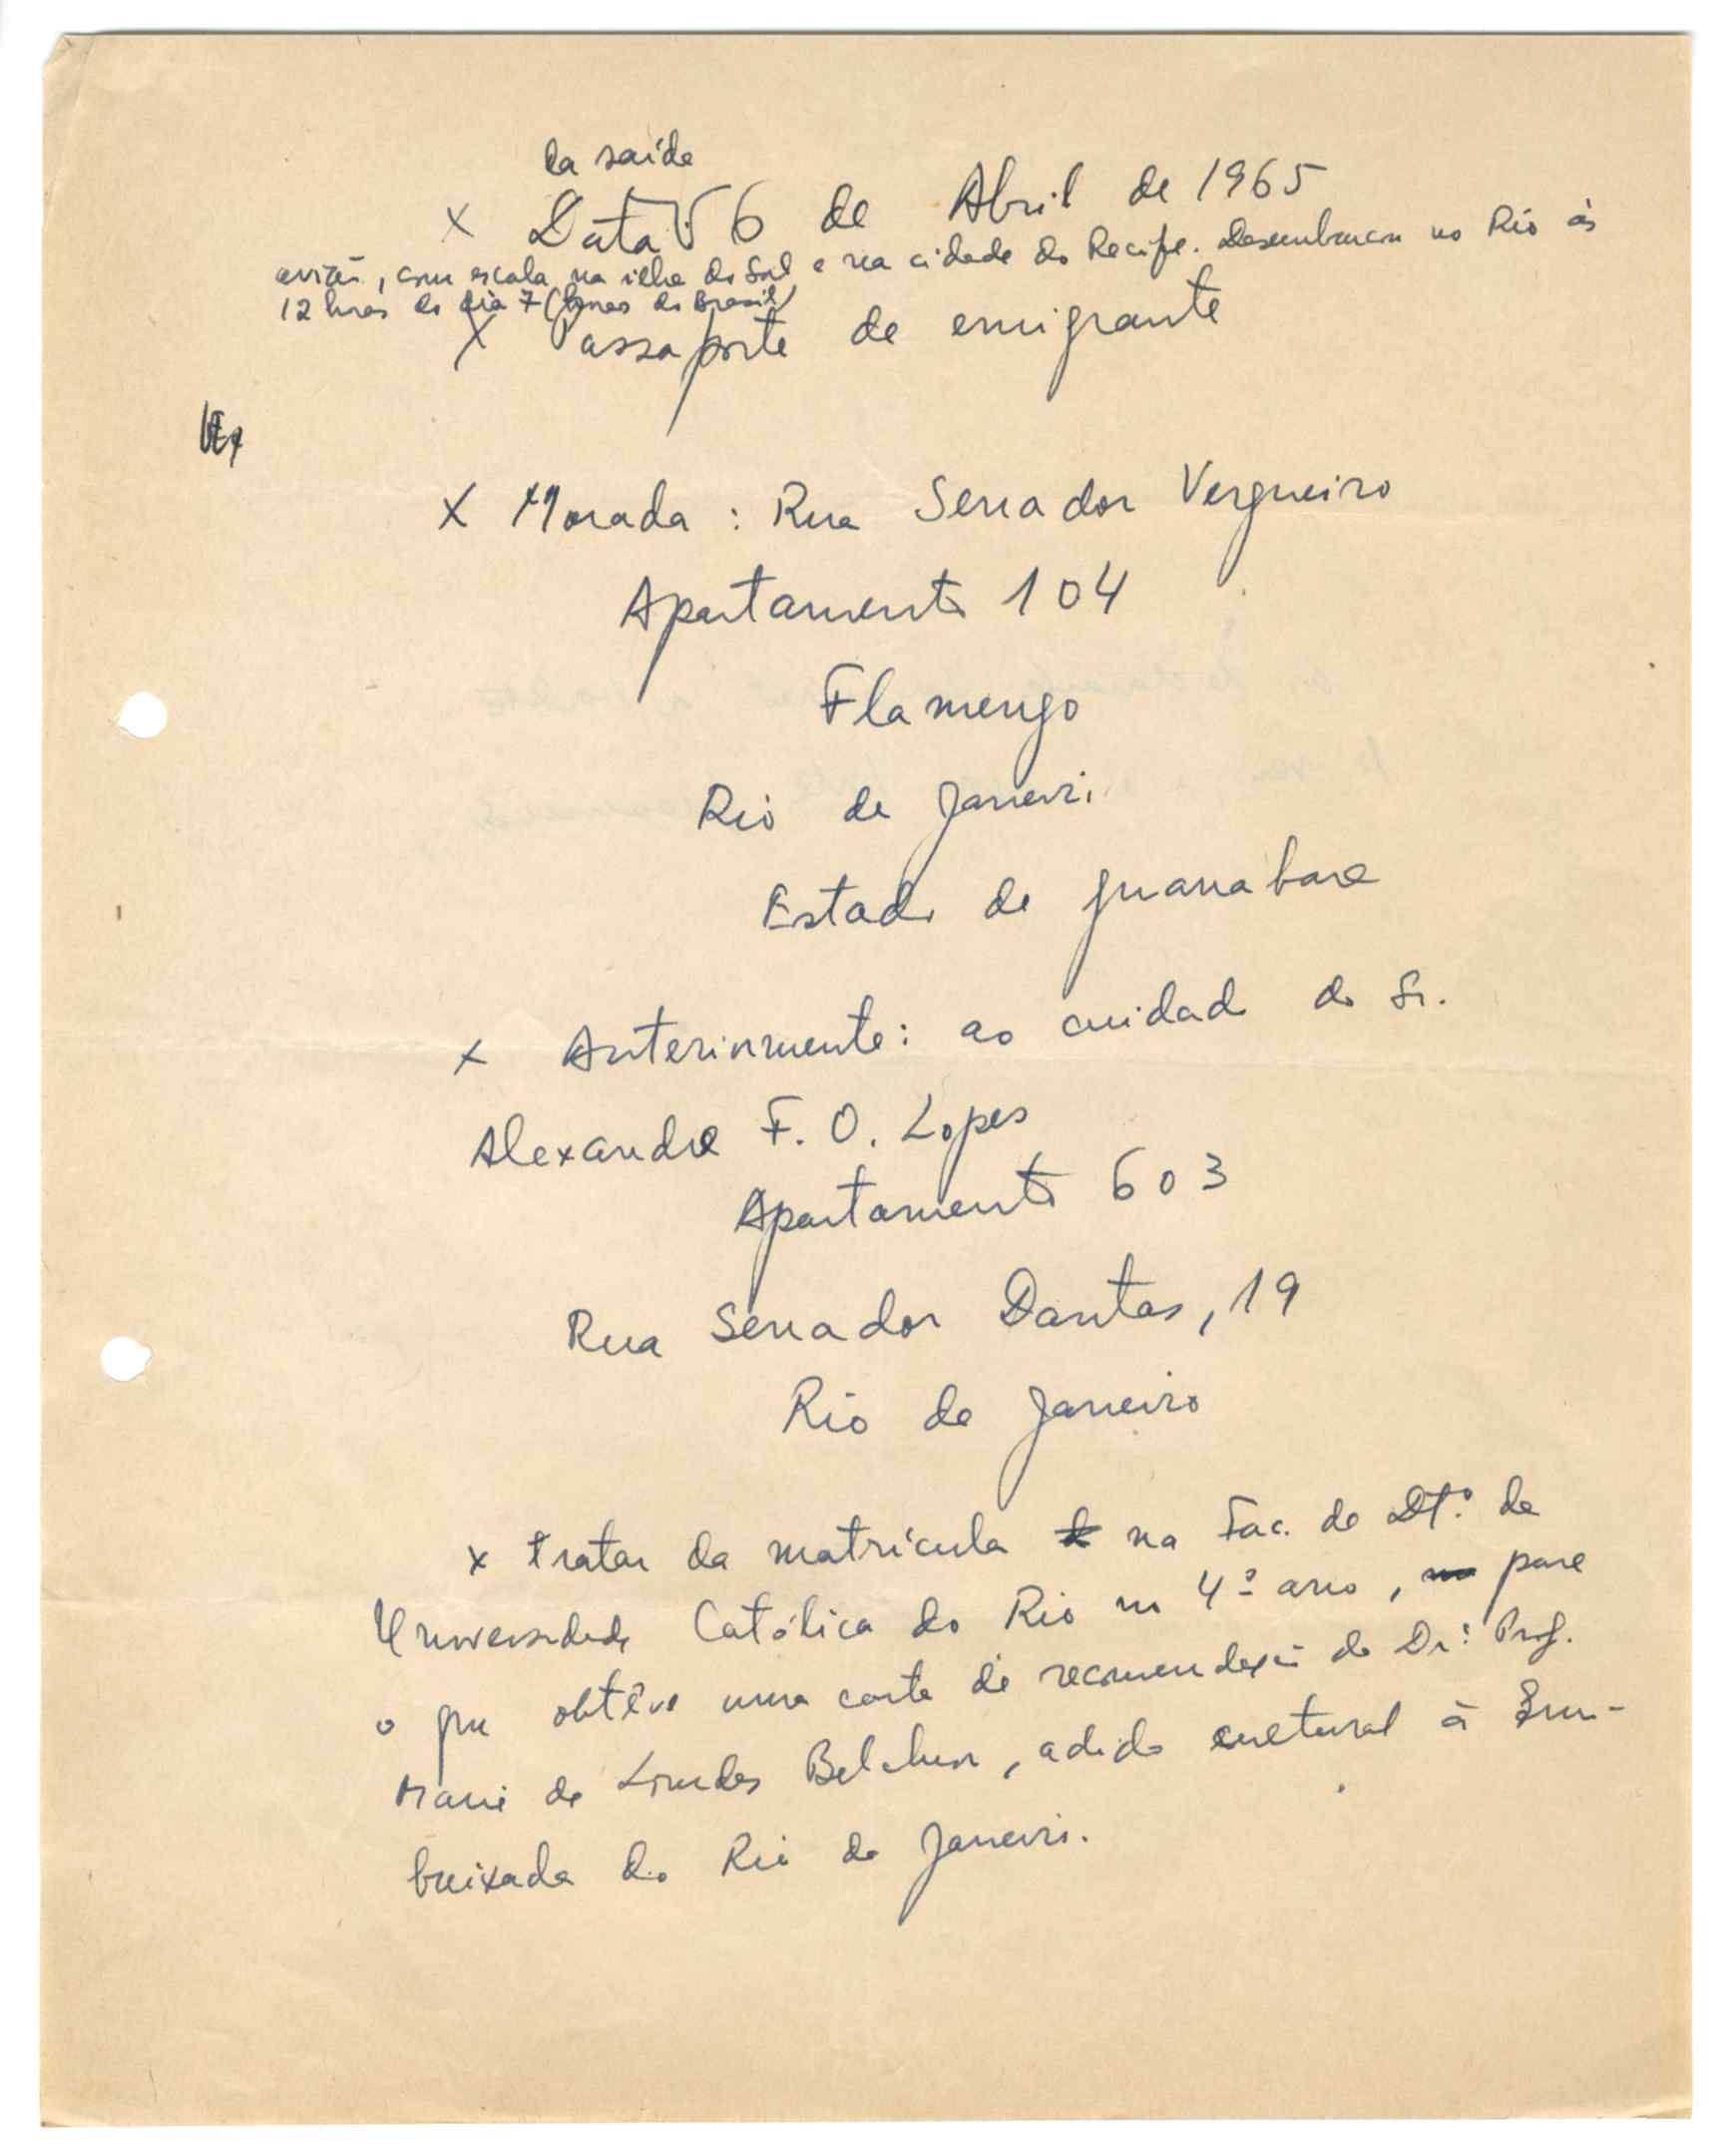 da saída
x Data: 6 de Abril de 1965
avião, com escala na ilha do Sal e na cidade do Recife. Desembarcou no Rio às
12 horas do dia 7 (horas do Brasil)
x Passaporte de emigrante
x Morada: Rua Senador Vergueiro
Apartamento 104
Flamengo
Rio de Janeiro
Estado de Guanabara
x Anteriormente: ao cuidado do Sr.
Alexandre F. O. Lopes
Apartamento 603
Rua Senador Dantas, 19
Rio de Janeiro
x tratar da matrícula na Fac. de Dtº. da
Universidade Católica do Rio no 4º ano, para
o que obteve uma carta de recomendação da Dr.ª Prof.
Maria de Lourdes Belchior, adido cultural à Em-
baixada do Rio de Janeiro.